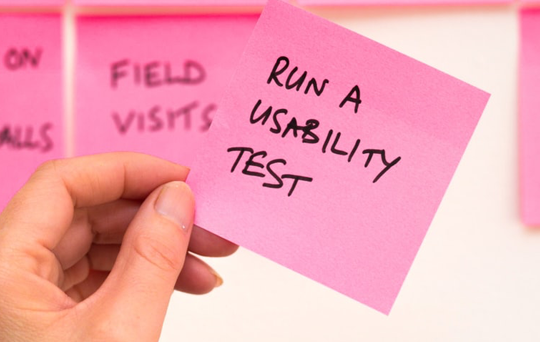 ON
ALLS
FIELD
VISITS
RUN A
USABILITY
TEST